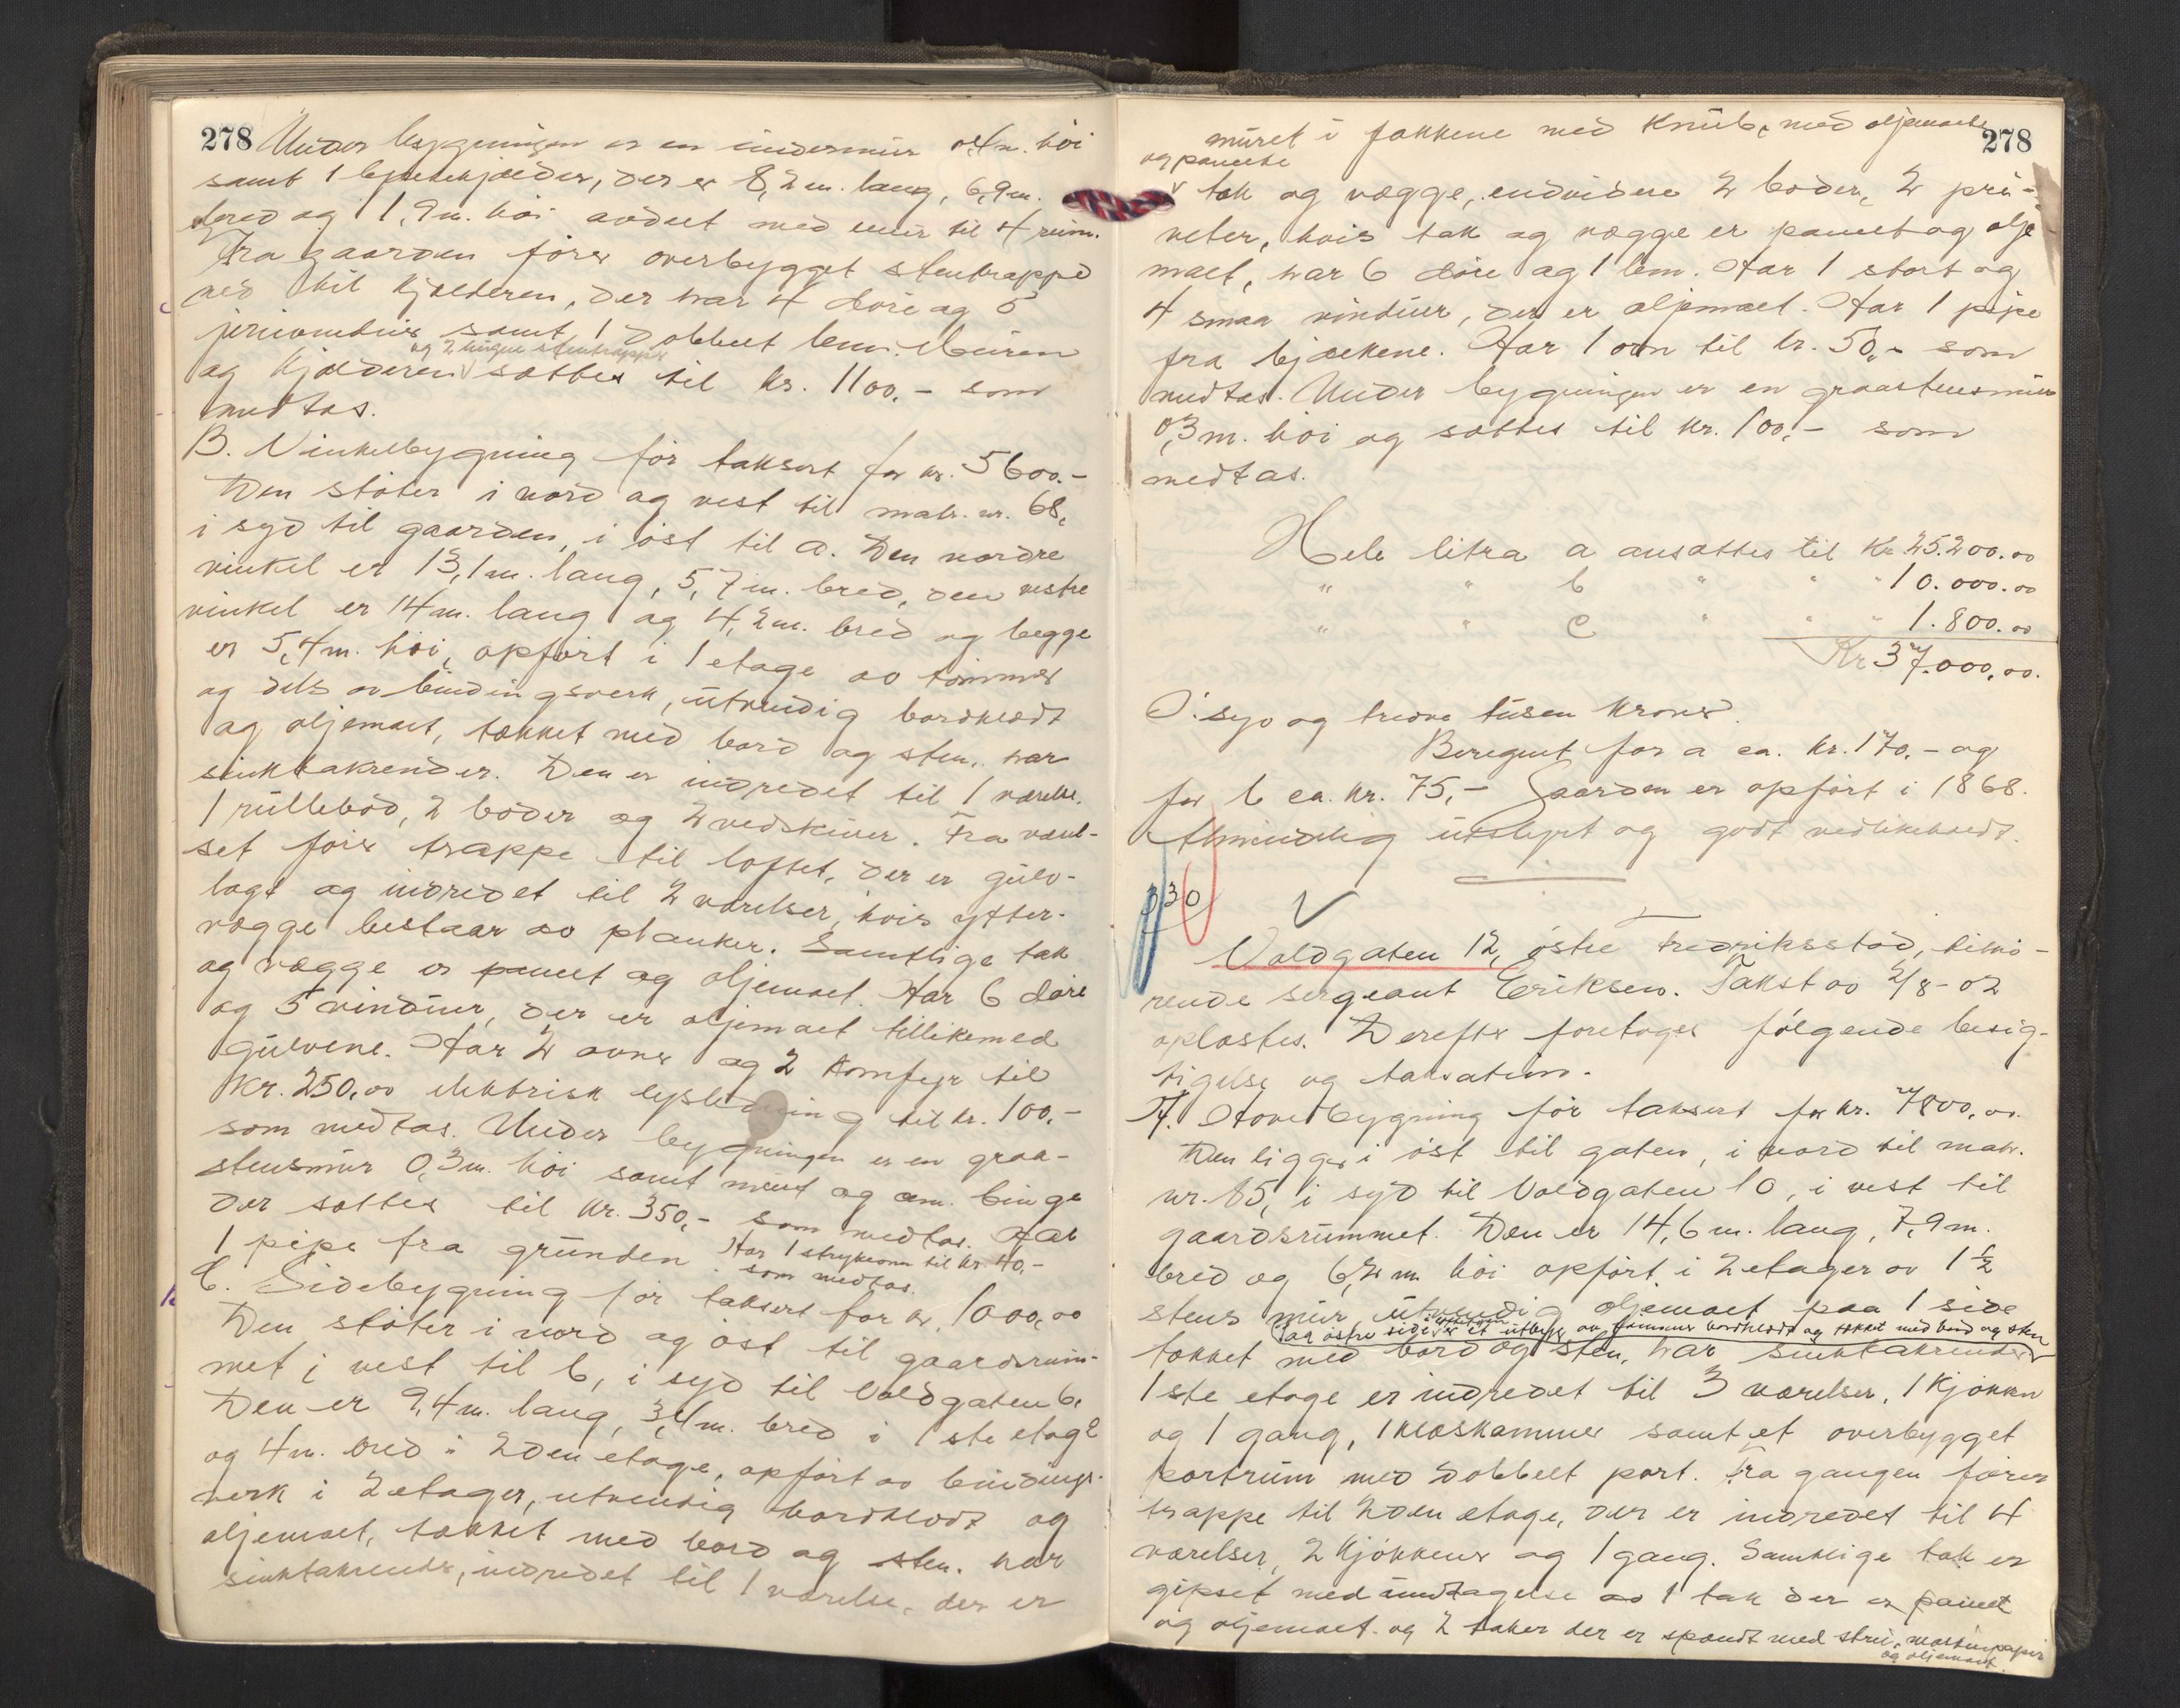 278 Under bygningen er en undermur 0,4m. höi
samt 1 hvelvkjælder, der er 8,2m. lang, 6,9m.
bred og 1,9m. höi avdelt med mur til 4 rum.
Fra gaarden förer overbygget stentrappe
ned til kjælderen, der har 4 döre og 5
jernvinduer samt 1 dobbelt lem. Muren
og 2 hugne stentrapper
og kjælderen sættes til kr. 1100,- som
medtas.
B. Vinkelbygning för taksert for kr. 5600.-
Den stöter i nord og vest til matr. nr. 68,
i syd til gaarden, i öst til a. Den nordre
vinkel er 13,1m. lang, 5,7m. bred, den vestre
vinkel er 14m. lang og 4,2m. bred og begge
er 5,4m. höi, opfört i 1 etage av tömmer
og dels av bindingsverk, utvendig bordklædt
og oljemalt, tækket med bord og sten, har
sinktakrender. Den er indredet til 1 værelse,
1 rullebod, 2 boder og 2 vedskiuer. Fra værel-
set förer trappe til loftet, der er gulv-
lagt og indredet til 2 værelser, hvis ytter-
vægge bestaar av planker. Samtlige tak
og vægge er panelt og oljemalt. Har 6 döre
og 5 vinduer, der er oljemalt tillikemed
gulvene. Har 2 ovner og 2 komfyr til
kr. 250,00 elektrisk lysledning til kr. 100,-
som medtas. Under bygningen er en graa-
stensmur 0,3m. höi samt muret og cem. binge
der sættes til kr. 350,- som medtas. Har
1 pipe fra grunden. Har 1 strykeovn til kr. 40,-
som medtas.
C. Sidebygning för taksert for kr. 1000,00
Den stöter i nord og öst til gaardsrum-
met, i vest til b, i syd til Voldgaten 6.
Den er 9,4m. lang, 3,4m. bred i 1ste etage
og 4m. bred i 2den etage, opfört av bindings-
verk i 2 etager, utvendig bordklædt og
oljemalt, tækket med bord og sten. har
sinktakrender, indredet til 1 værelse, der er
278
muret i fakkene med knub, med oljemalte
og panelte
tak og vægge, endvidere 2 boder, 2 pri-
veter, hvis tak og vægge er panelt og olje
malt, har 6 döre og 1 lem. Har 1 stort og
4 smaa vinduer, der er oljemalt. Har 1 pipe
fra bjælkene. Har 1 ovn til kr. 50,- som
medtas. Under bygningen er en graastensmur
0,3m. höi og sættes til kr. 100,- som
medtas.
Hele litra a ansættes til Kr 25.200.00
" " b " " " 10.000.00
" " c " " " 1.800.00
Kr 37.000,00.
O: syv og tredve tusen kroner.
Beregnet for a ca. kr. 170,- og
for b ca. kr. 75,- Gaarden er opfört i 1868.
Almindelig utstyrt og godt vedlikeholdt.
330
Voldgaten 12, östre Fredriksstad, tilhö-
rende sergeant Eriksen. Takst av 2/8-02
oplæstes. Derefter foretoges fölgende besig-
tigelse og taksation.
A. Hovedbygning för taksert for kr. 7800,00.
Den ligger i öst til gaten, i nord til matr.
nr. 65, i syd til Voldgaten 10, i vest til
gaardsrummet. Den er 14,6m. lang, 7,9m.
bred og 6,2m höi opfört i 2 etager av 1 1/2
stens mur, utvendig oljemalt paa 1 side
Paa östre side er et utbygg av tömmer bordklædt og tækket med bord og sten
tækket med bord og sten, har sinktakrender
1ste etage er indredet til 3 værelser, 1 kjökken
og 1 gang, 1 klæskammer samt et overbygget
portrum med dobbelt port. Fra gangen förer
trappe til 2den etage, der er indredet til 4
værelser, 2 kjökkener og 1 gang. Samtlige tak er
gipset med undtagelse av 1 tak der er panelt
og oljemalt og 2 taker der er spændt med strie, maskinpapir
og oljemalt.